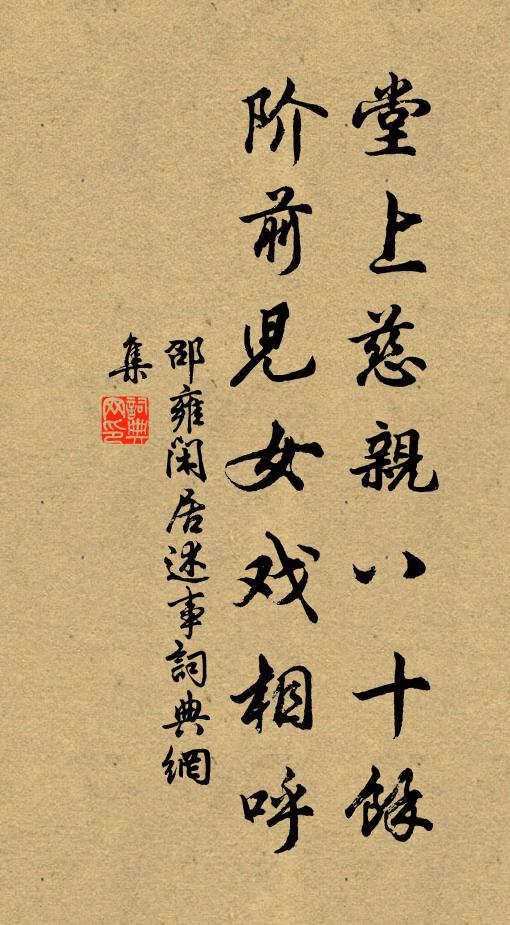 堂上慈親八十餘
阶前児女戏相呼
邵雍閑居述事詞典網
集
詞典網印